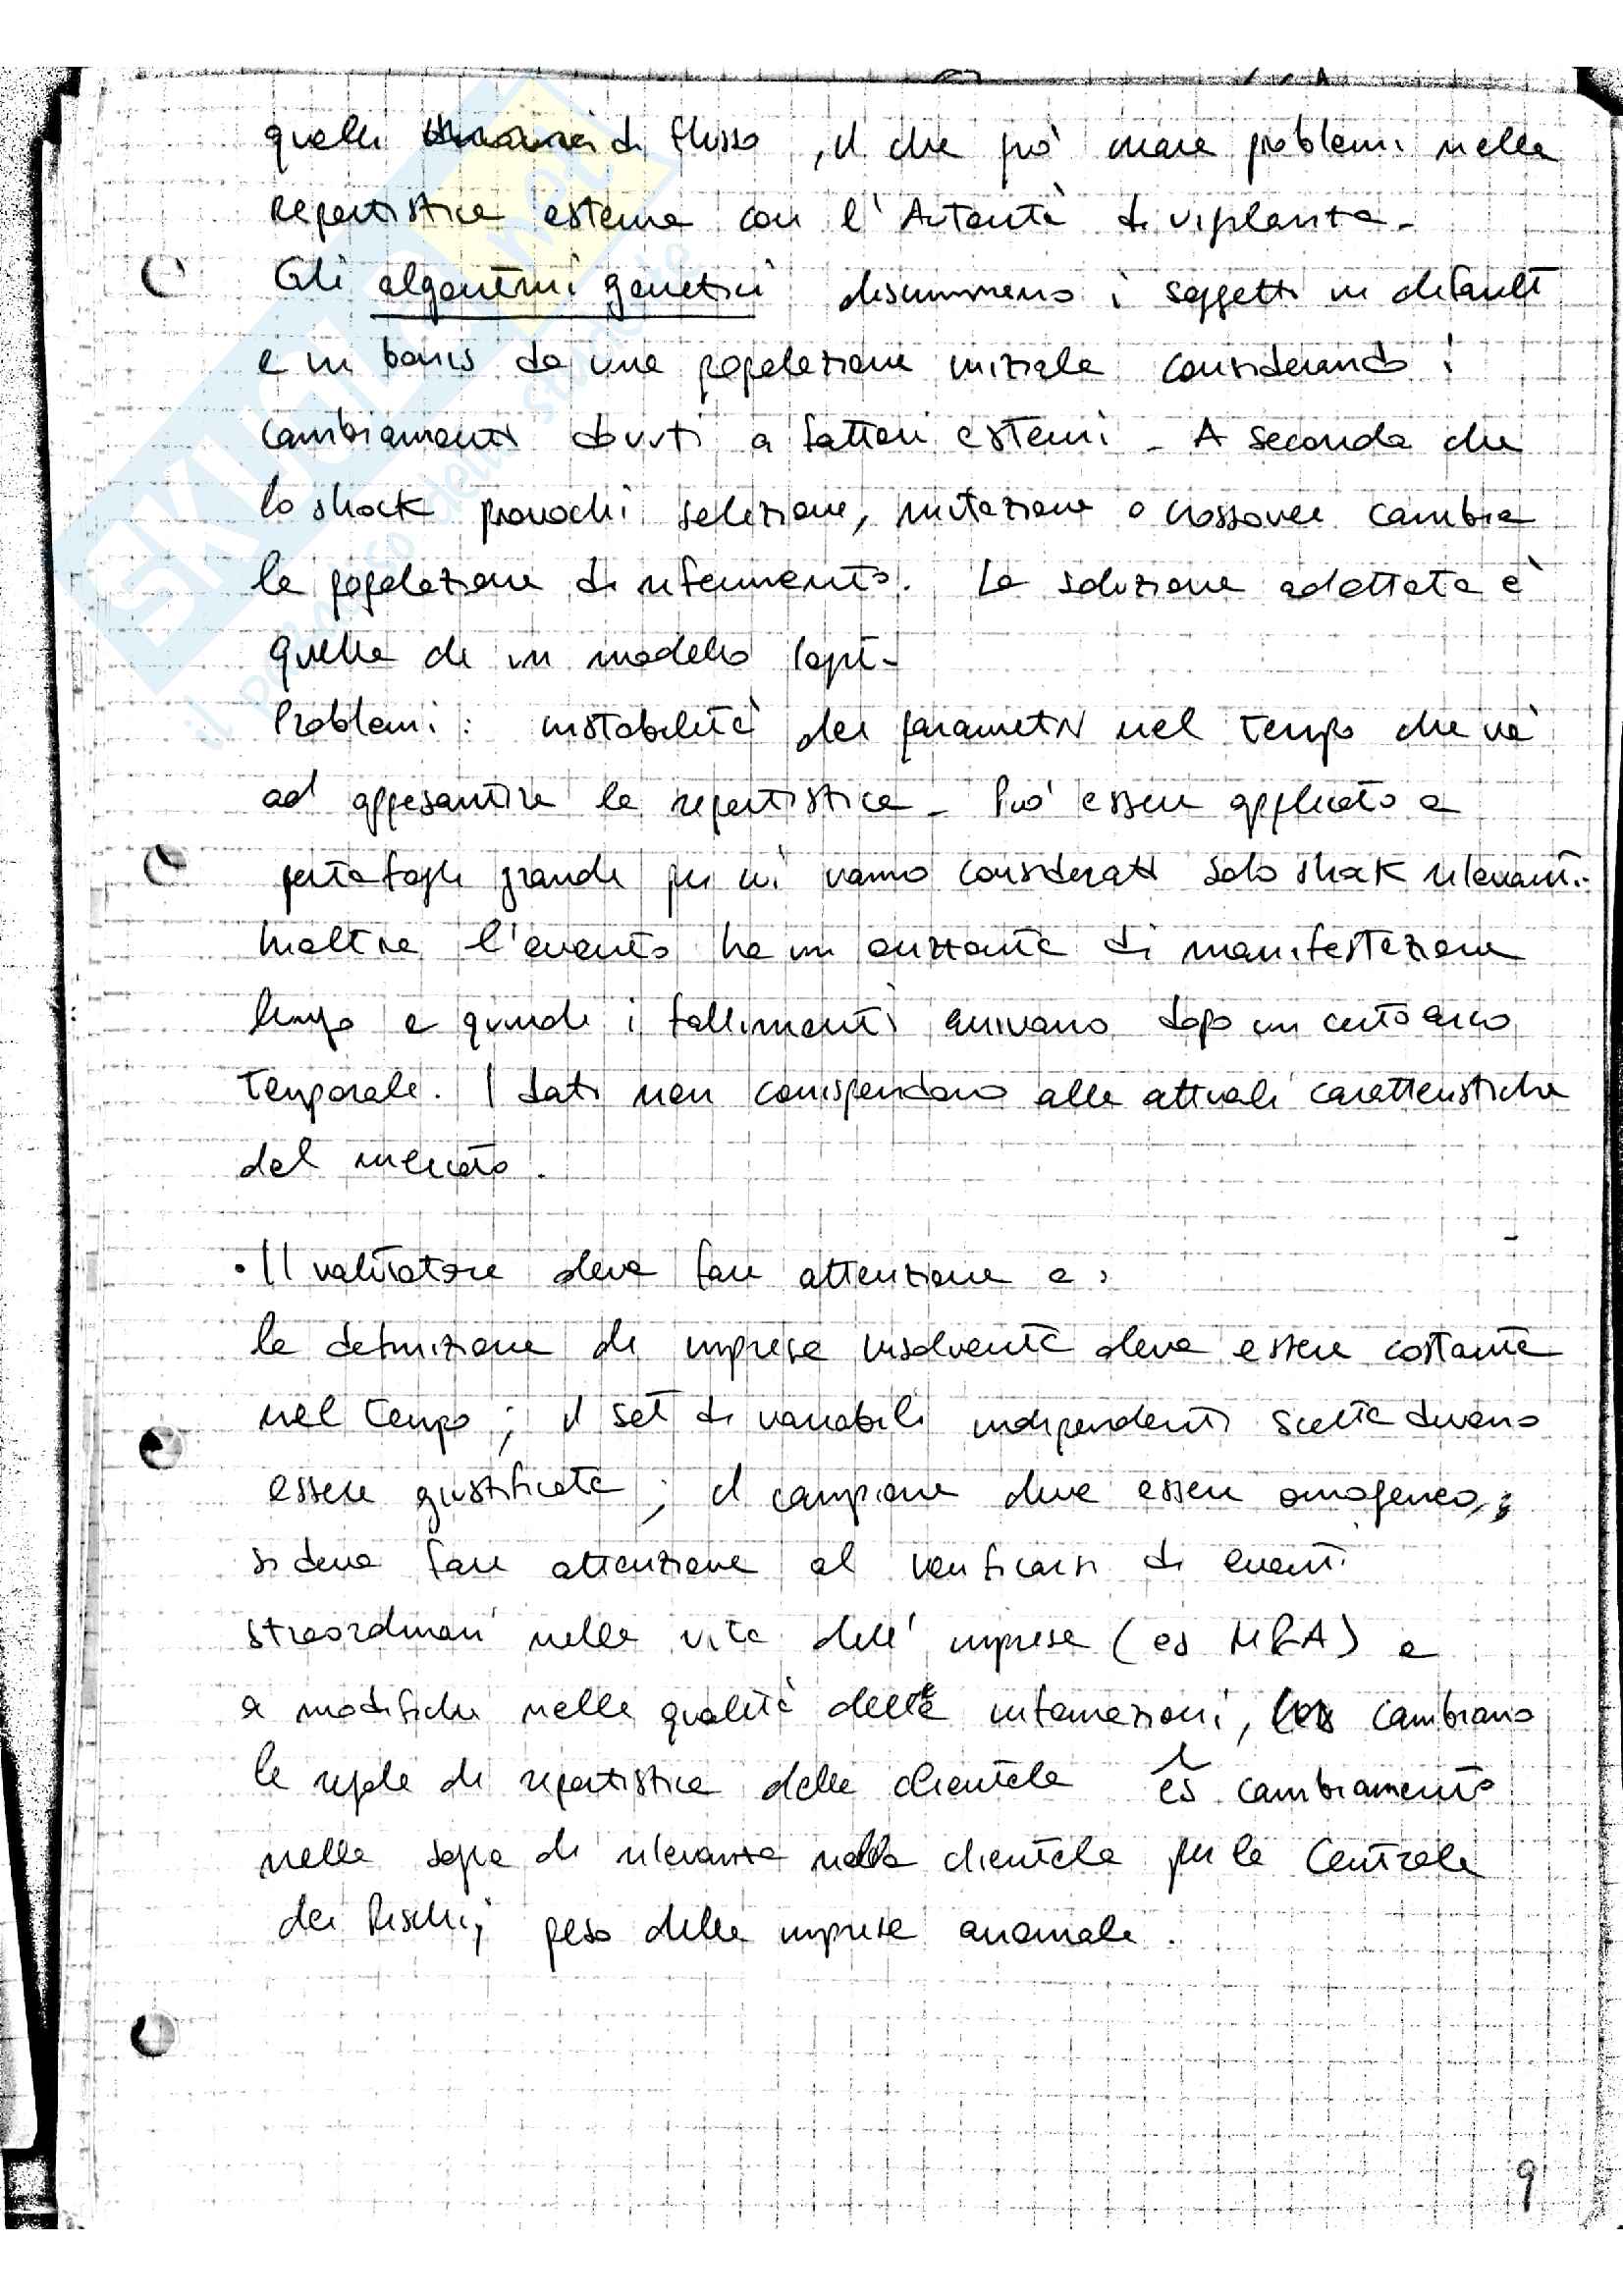 quelli di flusso, il che può creare problemi nella
reportistica esterna con l'Autorità di vigilanza.
Gli algoritmi genetici discriminano i soggetti in default
e in bonis da una popolazione iniziale considerando i
cambiamenti dovuti a fattori esterni. A seconda che
lo shock provochi selezione, mutazione o crossover cambia
la popolazione di riferimento. La soluzione adottata è
quella di un modello logit.
Problemi: instabilità dei parametri nel tempo che va
ad appesantire la reportistica. Può essere applicato a
portafogli grandi per cui vanno considerati solo shok rilevanti.
Inoltre l'evento ha un orizzonte di manifestazione
lungo e quindi i fallimenti arrivano dopo un certo arco
temporale. I dati non corrispondono alle attuali caratteristiche
del mercato.
• Il valutatore deve fare attenzione a:
la definizione di impresa insolvente deve essere costante
nel tempo; il set di variabili indipendenti scelte devono
essere giustificate; il campione deve essere omogeneo;
si deve fare attenzione al verificarsi di eventi
straordinari nella vita dell'impresa (es M&A) e
a modifiche nella qualità delle informazioni, cambiano
le regole di reportistica della clientela es cambiamento
nella soglia di rilevanza nella clientela per la Centrale
dei Rischi; peso delle imprese anomale.
9
SKUOLA.net
il paradiso dello studente